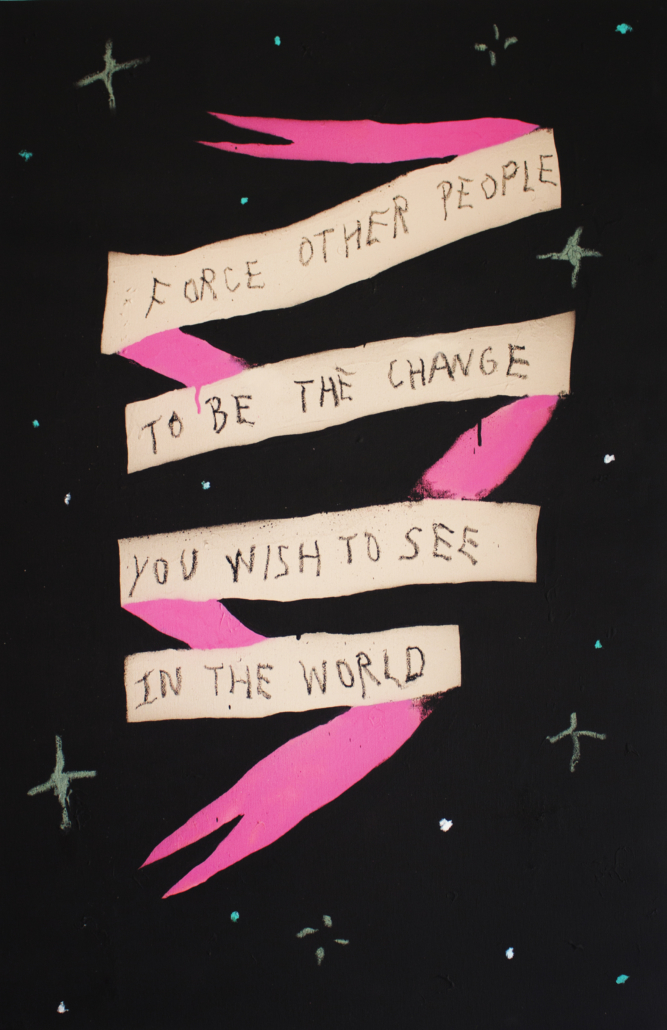 FORCE OTHER PEOPLE
TO BE THE CHANGE
YOU WISH TO SEE
IN THE WORLD